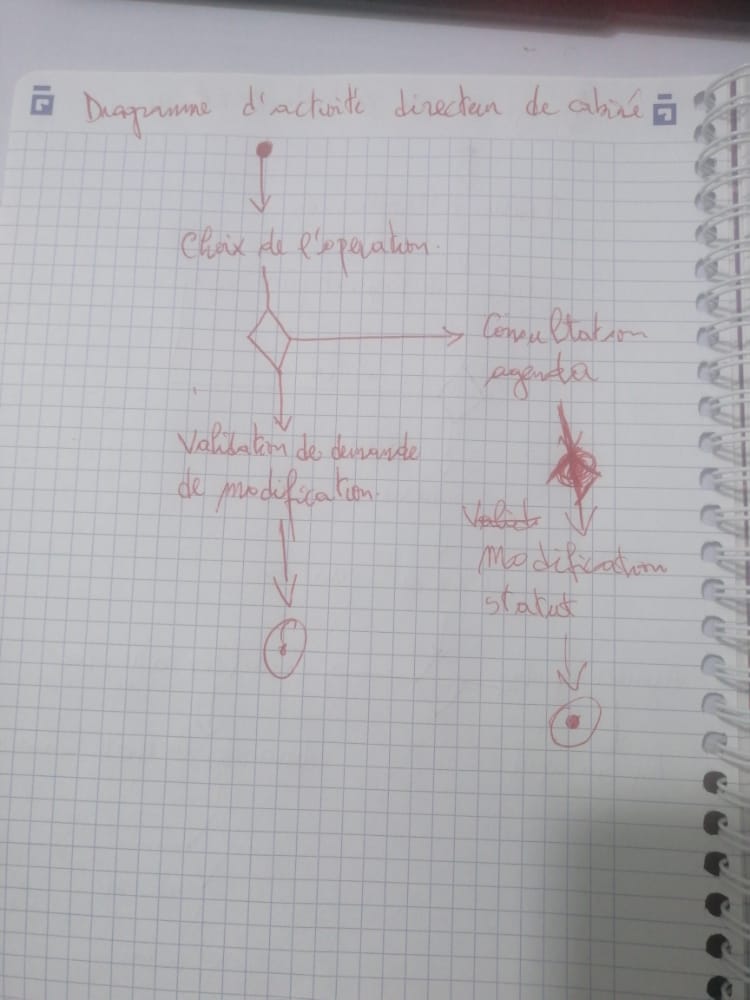 Diagramme d'activité directeur de cabiné
Choix de l'operation.
Consultation
agenda
Validation de demande
de modification.
Modification
statut